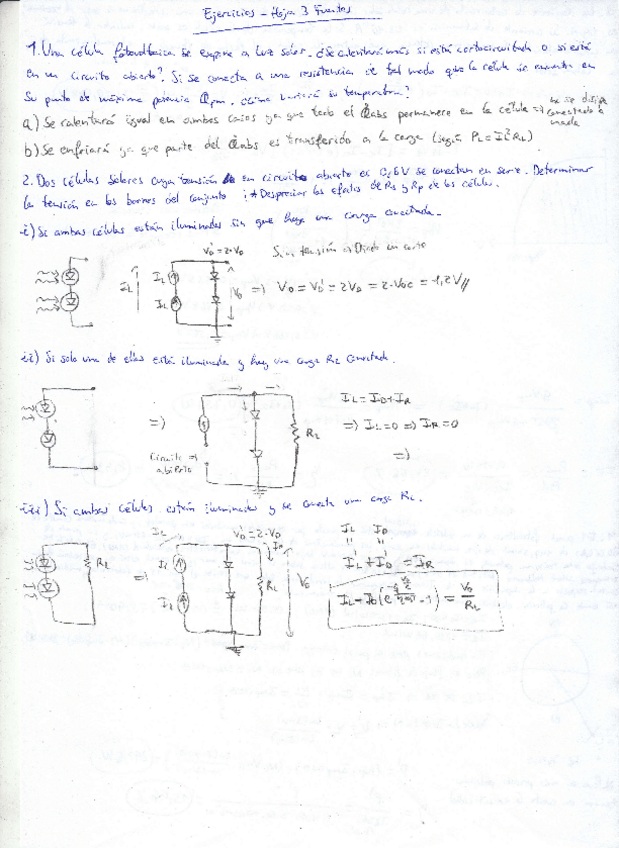 Ejercicios - Hoja 3 Fuentes
1. Una célula fotovoltaica se expone a luz solar. ¿Se calentará más si está cortocircuitada o si está
en un circuito abierto? Si se conecta a una resistencia de tal modo que la célula se encuentra en
su punto de máxima potencia Qpm. ¿Cómo variará su temperatura?
a) Se calentará igual en ambos casos ya que todo el Qabs permanece en la célula ⇒ conectado a nada
b) Se enfriará ya que parte del Qabs es transferido a la carga (según PL = I²RL)
2. Dos células solares cuya tensión en circuito abierto es 0,6V se conectan en serie. Determinar
la tensión en los bornes del conjunto: * Despreciar los efectos de Rs y Rp de las células.
i) Si ambas células están iluminadas sin que haya una carga conectada.
VD' = 2·VD
IL
IL
IL
V0
⇒ V0 = VD' = 2VD = 2·Voc = 1,2V//
ii) Si solo una de ellas está iluminada y hay una carga RL conectada.
⇒
Circuito abierto ⇒
RL
IL = ID + IR
⇒ IL = 0 ⇒ IR = 0
⇒
iii) Si ambas células están iluminadas y se conecta una carga RL.
RL
⇒
IL
VD' = 2·VD
IL
IL
RL
V0
IL ID
IL' + ID' = IR
= V0/RL